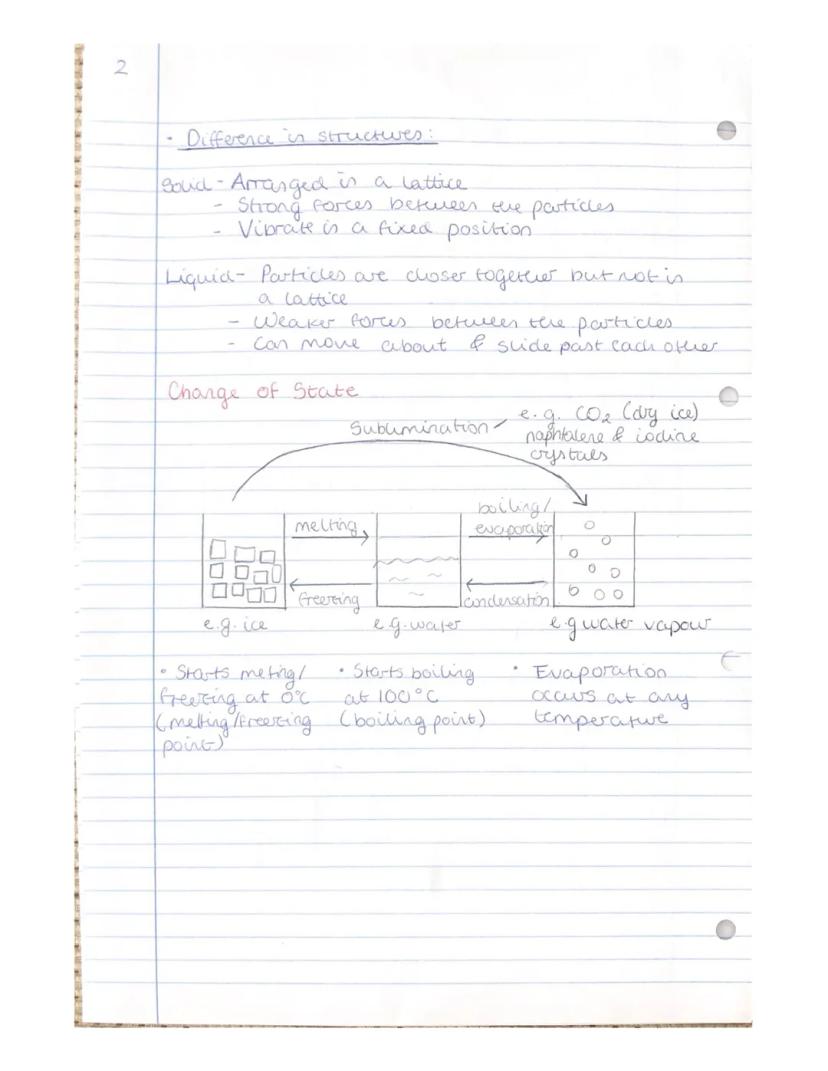 2
• Difference in structures:
Solid - Arranged in a lattice
- Strong forces between the particles
- Vibrate in a fixed position
Liquid - Particles are closer together but not in
a lattice
- Weaker forces between the particles
- Can move about & slide past each other
Change of State
Sublimination
e.g. CO₂ (dry ice)
naphtalene & iodine
crystals
melting
boiling/
evaporation
freezing
condensation
e.g. ice
e.g. water
e.g water vapour
• Starts meting/
freezing at 0°C
(melting/freezing
point)
• Starts boiling
at 100°C
(boiling point)
• Evaporation
occurs at any
temperature